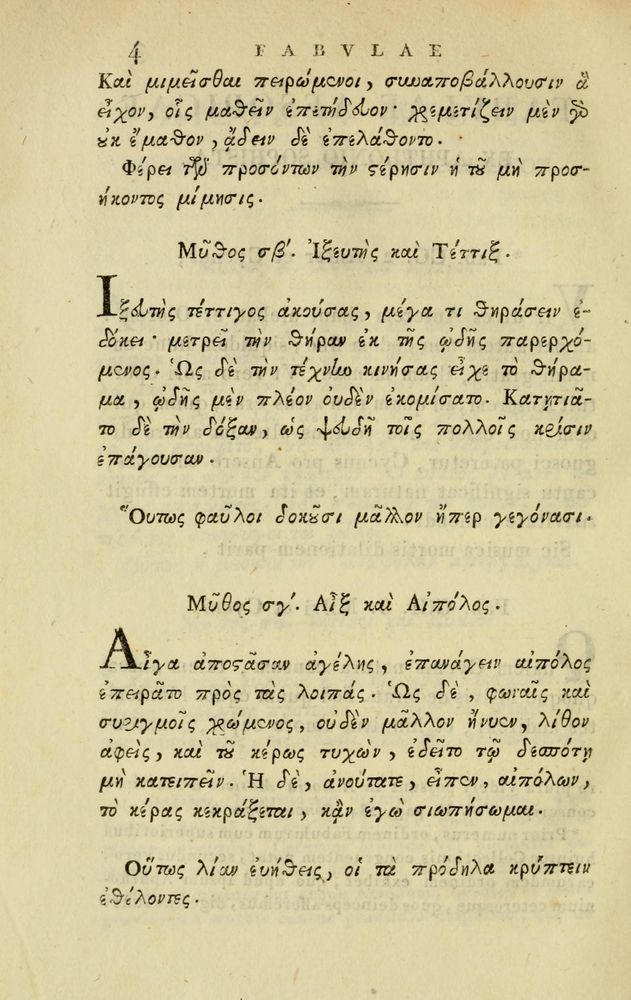 4 FABVLAE
Καὶ μιμεῖσθαι πειρώμενοι, συναποβάλλουσιν ἃ
εἶχον, οἷς μαθεῖν ἐπετήδευον· χρεμετίζειν μὲν γὰρ
ουκ ἔμαθον, ᾄδειν δὲ ἐπελάθοντο.
Φέρει τῶν προσόντων τὴν στέρησιν ἡ τοῦ μὴ προσ-
ήκοντος μίμησις.
Μῦθος σβʹ. Ἰξευτὴς καὶ Τέττιξ.
Ἰξευτὴς τέττιγος ἀκούσας, μέγα τι θηράσειν ἐ-
δόκει· μετρεῖ τὴν θήραν ἐκ τῆς ᾠδῆς παρερχό-
μενος. Ὡς δὲ τὴν τέχνην κινήσας εἶχε τὸ θήρα-
μα, ᾠδῆς μὲν πλέον ουδὲν ἐκομίσατο. Κατῃτιᾶ-
το δὲ τὴν δόξαν, ὡς ψευδῆ τοῖς πολλοῖς κρίσιν
ἐπάγουσαν.
Ὅυτως φαῦλοι δοκοῦσι μᾶλλον ἤπερ γεγόνασι.
Μῦθος σγʹ. Αἲξ καὶ Αἰπόλος.
Αἶγα ἀποστᾶσαν ἀγέλης, ἐπανάγειν αἰπόλος
ἐπειρᾶτο πρὸς τὰς λοιπάς. Ὡς δὲ, φωναῖς καὶ
συριγμοῖς χρώμενος, ουδὲν μᾶλλον ἤνυεν, λίθον
ἀφεὶς, καὶ τοῦ κέρως τυχὼν, ἐδεῖτο τῷ δεσπότῃ
μὴ κατειπεῖν. Ἡ δὲ, ἀνούτατε, εἶπεν, αἰπόλων,
τὸ κέρας κεκράξεται, κᾂν ἐγὼ σιωπήσωμαι.
Οὕτως λίαν ἐυήθεις, οἱ τὰ πρόδηλα κρύπτειν
ἐθέλοντες.